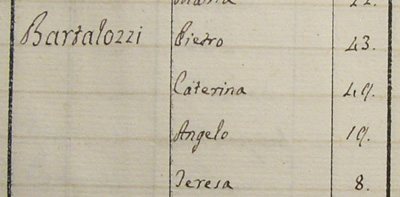 Bartalozzi Pietro 43.
Caterina 49.
Angelo 19.
Teresa 8.